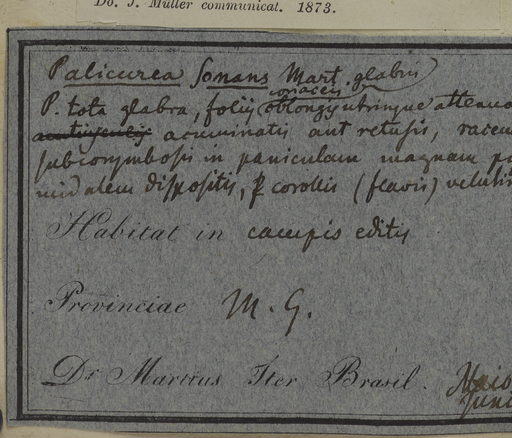 Do. J. Müller communicat. 1873.
Palicurea sonans Mart. glabris
coriaceis
P. tota glabra, foliis oblongis utrinque attenua
acuminatis aut retusis, racem
subcorymbosis in paniculam magnam
midalem dispositis, corollis (flavis) velutin
Habitat in campis editis
Provinciae M. G.
Dr Martius Iter Brasil. Maio
Juni